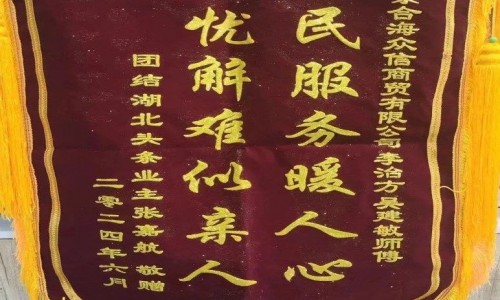 合海众信商贸有限公司李治方吴建敏师傅
民服务暖人心
忧解难似亲人
团结湖北头条业主张嘉航 敬赠
二零二四年六月